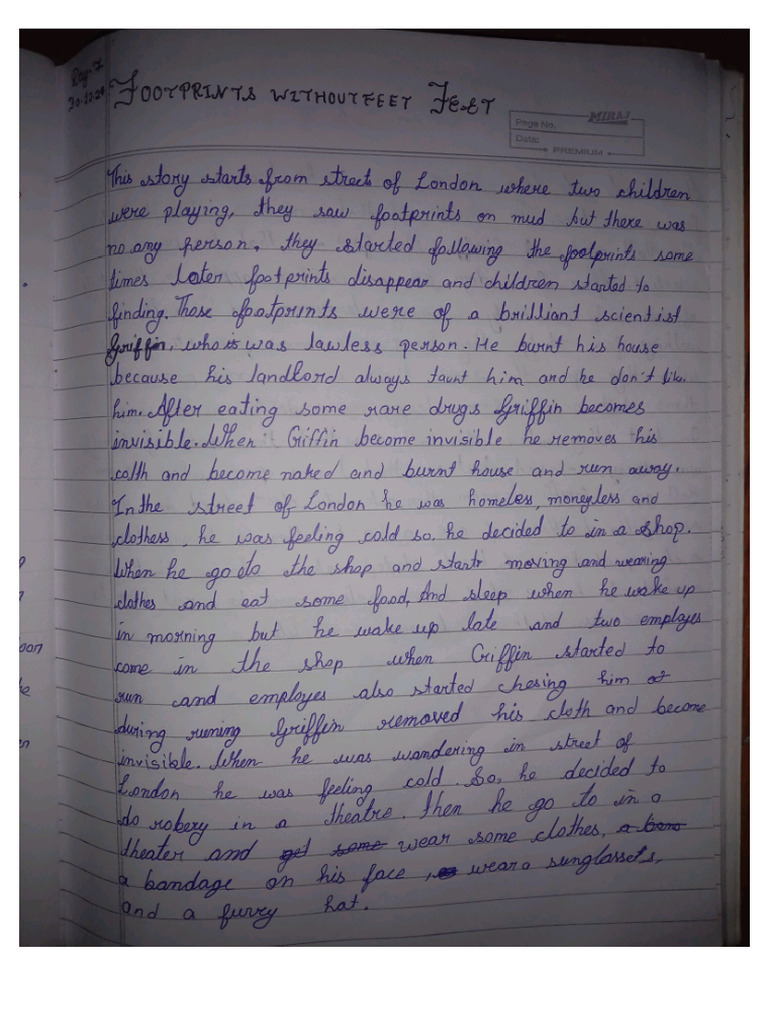 Day-7
30.12.24
FOOTPRINTS WITHOUT FEET FEET
MIRAJ
Page No.
Date:
PREMIUM
This story starts from street of London where two children
were playing, they saw footprints on mud but there was
no any person, they started following the footprints some
times later footprints disappear and children started to
finding. Those footprints were of a brilliant scientist
Griffin, who is was lawless person. He burnt his house
because his landlord always taunt him and he don't like
him. After eating some rare drugs Griffin becomes
invisible. When Giffin become invisible he removes his
colth and become naked and burnt house and run away.
In the street of London he was homeless, moneyless and
clothess, he was feeling cold so. he decided to in a shop.
When he go to the shop and start moving and wearing
clothes and eat some food, And sleep when he wake up
in morning but he wake up late and two employes
come in the shop when Griffin started to
run and employes also started chesing him at
during runing Griffin removed his cloth and become
invisible. When he was wandering in street of
London he was feeling cold. So, he decided to
do robery in a theatre. then he go to in a
theater and get some wear some clothes,
a bandage on his face, wear a sunglasses,
and a furry hat.
oon